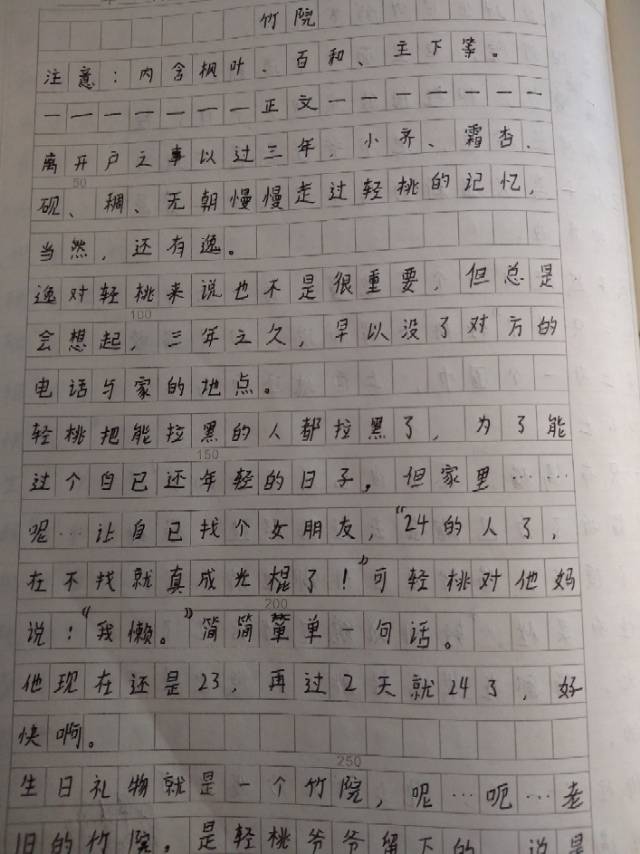 竹院
注意：内含枫叶、百和、主下等。
一一一一一一一一正文一一一一一一一一
离开户之事以过三年，小齐、霜杏、
50
砚、稠、无朝慢慢走过轻桃的记忆，
当然，还有逸。
逸对轻桃来说也不是很重要，但总是
100
会想起，三年之久，早以没了对方的
电话与家的地点。
轻桃把能拉黑的人都拉黑了，为了能
150
过个自已还年轻的日子，但家里……
呢…让自已找个女朋友，“24的人了，
在不找就真成光棍了！”可轻桃对他妈
200
说：“我懒。”简简单单一句话。
他现在还是23，再过2天就24了，好
快啊。
250
生日礼物就是一个竹院，呢…呃…老
旧的竹院，是轻桃爷爷留下的，说是